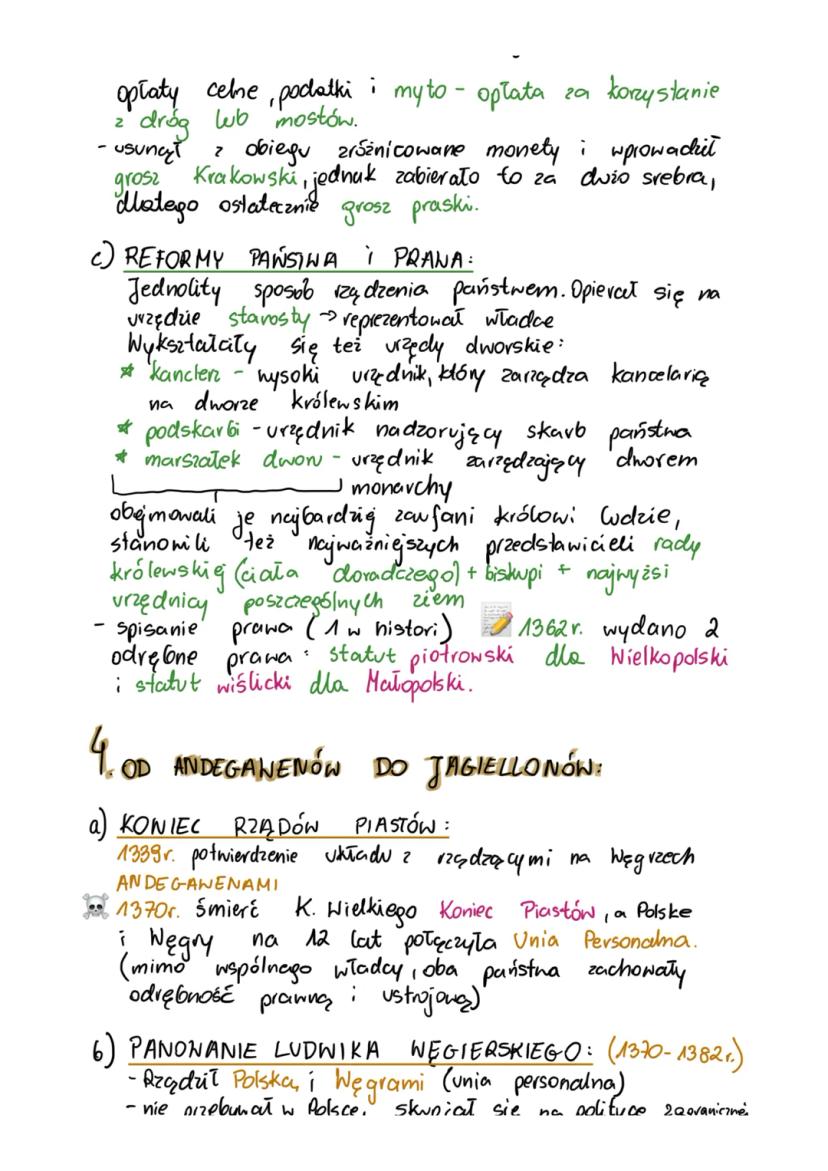 opłaty celne, podatki i myto - opłata za korzystanie
z dróg lub mostów.
- usunął z obiegu zróżnicowane monety i wprowadził
grosz Krakowski, jednak zabierało to za dużo srebra,
dlatego ostatecznie grosz praski.
c) REFORMY PAŃSTWA i PRAWA:
Jednolity sposób rządzenia państwem. Opierał się na
urzędzie starosty → reprezentował władcę
Wykształciły się też urzędy dworskie:
* kanclerz - wysoki urzędnik, który zarządza kancelarią
na dworze królewskim
* podskarbi - urzędnik nadzorujący skarb państwa
* marszałek dworu - urzędnik zarządzający dworem
monarchy
obejmowali je najbardziej zaufani królowi ludzie,
stanowili też najważniejszych przedstawicieli rady
królewskiej (ciała doradczego) + biskupi + najwyżsi
urzędnicy poszczególnych ziem
- spisanie prawa (1 w histori) 📝 1362r. wydano 2
odrębne prawa: statut piotrowski dla Wielkopolski
i statut wiślicki dla Małopolski.
4. OD ANDEGAWENÓW DO JAGIELLONÓW:
a) KONIEC RZĄDÓW PIASTÓW:
1339r. potwierdzenie układu z rządzącymi na Węgrzech
ANDEGAWENAMI
☠️ 1370r. śmierć K. Wielkiego Koniec Piastów, a Polskę
i Węgry na 12 lat połączyła Unia Personalna.
(mimo wspólnego władcy, oba państwa zachowały
odrębność prawną i ustrojową)
b) PANOWANIE LUDWIKA WĘGIERSKIEGO: (1370-1382r.)
- Rządził Polską i Węgrami (unia personalna)
- nie przebywał w Polsce, skupiał się na polityce zagranicznej